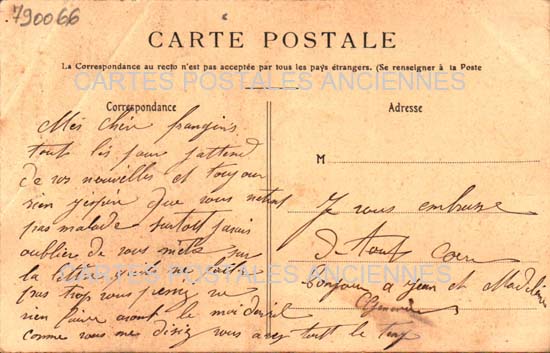 790066
CARTE POSTALE
La Correspondance au recto n'est pas acceptée par tous les pays étrangers. (Se renseigner à la Poste
CARTES POSTALES ANCIENNES
Correspondance
Adresse
Mes frangins
tout les jours j'attend
de vos nouvelles et toujour
rien j'espère que vous
pas malade surtout
oublier de vous sur
la
pas trop vous pressez ne
rien faire avant le moi
comme vous me disiez vous avez tout le temp
M
Je vous embrasse
d tout coeur
bonjour a Jean et Madeleine
CARTES POSTALES ANCIENNES